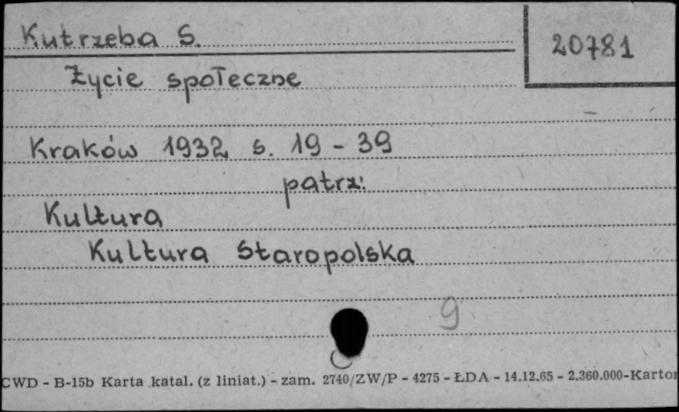 Kutrzeba S.
20781
Życie społeczne
Kraków 1932 s. 19 - 39
patrz:
Kultura
Kultura Staropolska
9
CWD - B-15b Karta katal. (z liniat.) - zam. 2740/ZW/P - 4275 - ŁDA - 14.12.65 - 2.360.000-Karton